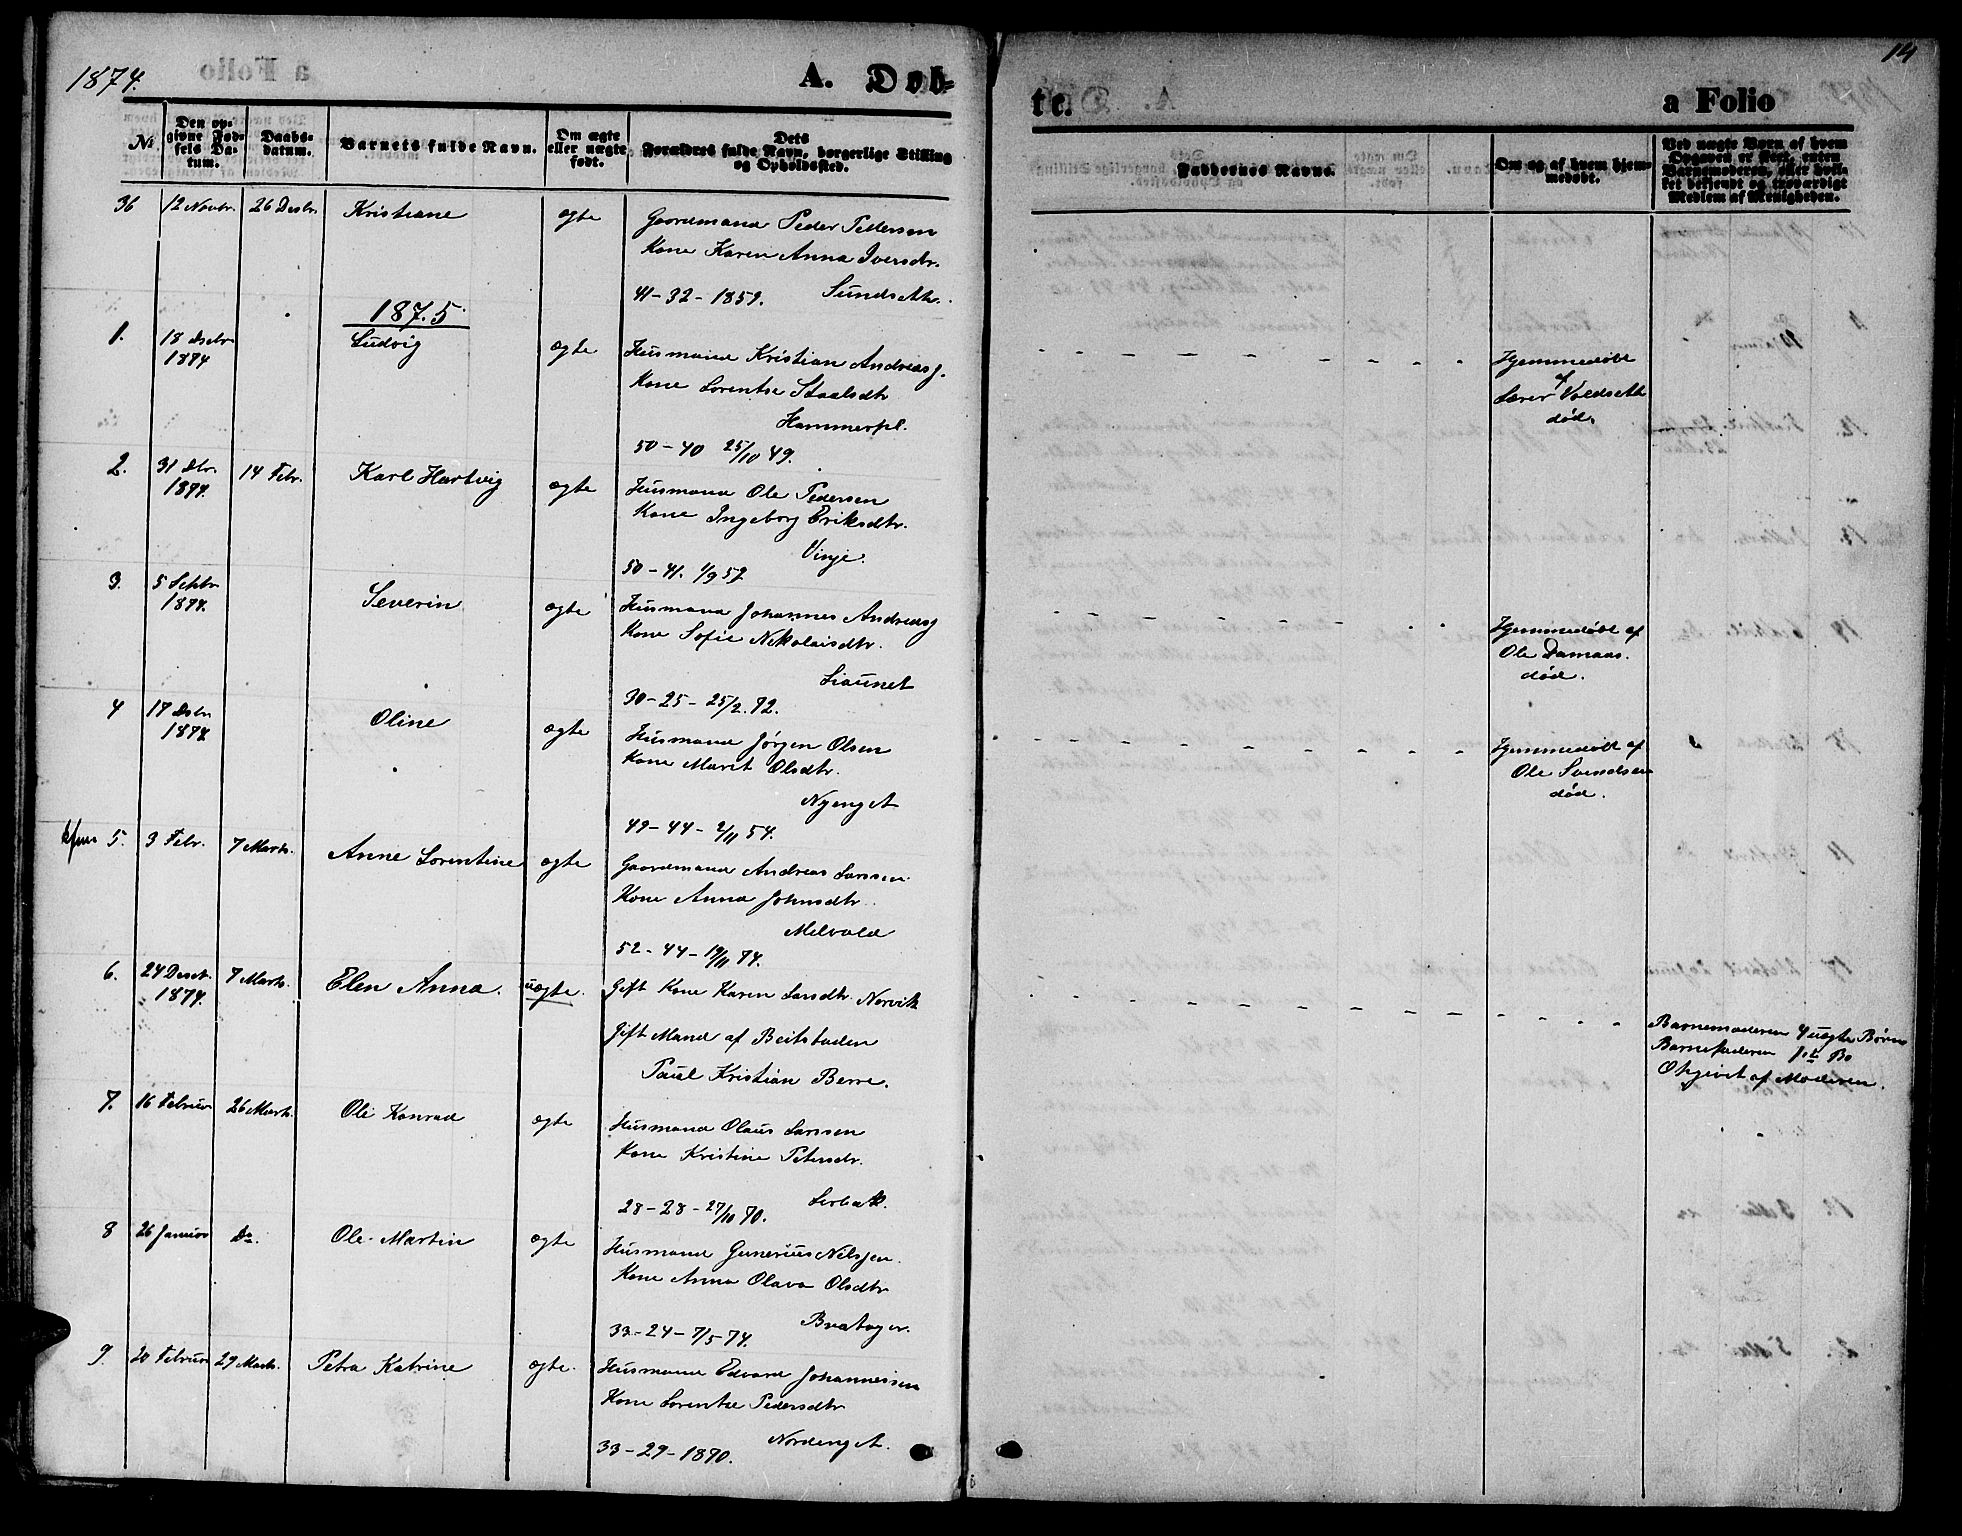 1874.
A. Døb-
№
Den op-
givne Fød-
sels Da-
tum.
Daabs-
datum.
Barnets fulde Navn.
Om ægte
eller uægte
født.
Dets
Forældres fulde Navn, borgerlige Stilling
og Opholdssted.
36 12 Novbr. 26 Desbr. Kristiane ægte Gaardmand Peder Pedersen
Kone Karen Anna Iversdtr.
41-32-1859. Sundseth.
1875
1. 18 Desbr. 1874 Ludvig ægte Husmand Kristian Andreasj.
Kone Lorentse Staalsdtr
Hammerpl.
50-40 25/10 49.
2. 31 Dbr. 1874. 14 Febr. Karl Hartvig ægte Husmand Ole Pedersen
Kone Ingeborg Eriksdtr.
Vinje.
50-41. 1/9 52
3. 5 Septbr 1874. Severin ægte Husmand Johannes Andreasj
Kone Sofie Nikolaisdtr.
Liaunet
30-25-25/2.72.
4 17 Dsbr 1874 Oline ægte Husmand Jørgen Olsen
Kone Marit Olsdtr.
Nyenget
49-44-2/11 54.
5. 3 Febr. 7 Marts. Anne Lorentine ægte Gaardmand Andreas Larssen.
Kone Anna Johnsdtr.
Melvold
52-44-19/11 74.
6. 24 Desbr. 1874. 7 Marts. Elen Anna. uægte. Gift Kone Karen Larsdtr. Norvik
Gift Mand af Beitstaden
Paul Kristian Berre.
7. 16 Februar 26 Marts. Ole Konrad ægte Husmand Olaus Larssen
Kone Kristine Petersdtr.
28-28-27/10 70.
8 26 Januar Do. Ole Martin ægte Husmand Gunerius Nilsjen.
Kone Anna Olava Olsdtr
33-24-7/5-74. Bratager.
9. 20 Februar 29 Marts. Petra Katrine ægte. Husmand Edvard Johannessen
Kone Lorentse Pedersdtr
33-29-1870. Nordenget.
14
te.
a Folio
Faddernes Navne.
Om og af hvem hjem-
medøbt.
Ved uægte Børn af hvem
Opgaven er skeet, enten
Barnemoderen, eller hvil-
ket bekjendt og troværdigt
Medlem af Menigheden.
Hjemmedøbt
af
Lærer Voldseth
død.
Hjemmedøbt af
Ole Damaas.
død.
Hjemmedøbt af
Ole Svendsen
død.
Barnemoderen 4 uægte Børn
Barnefaderen 1ste Do
Opgivet af Moderen.